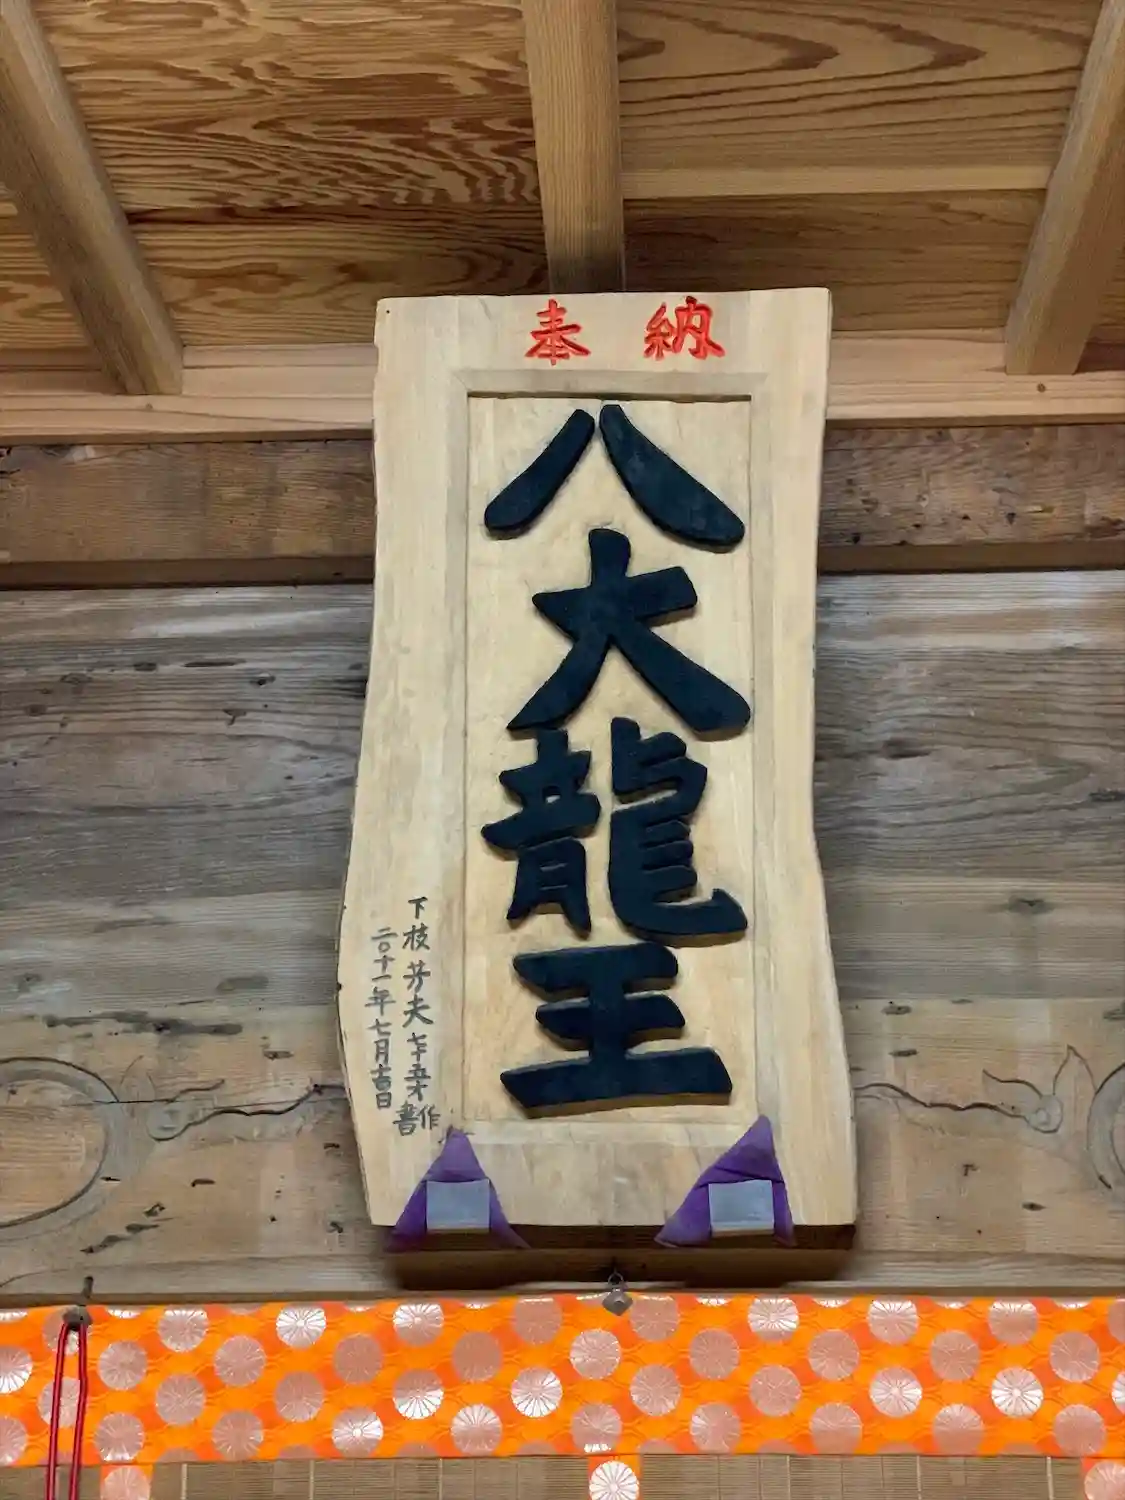 奉納
八大龍王
下枝芳夫七十五才作書
二〇十一年七月吉日